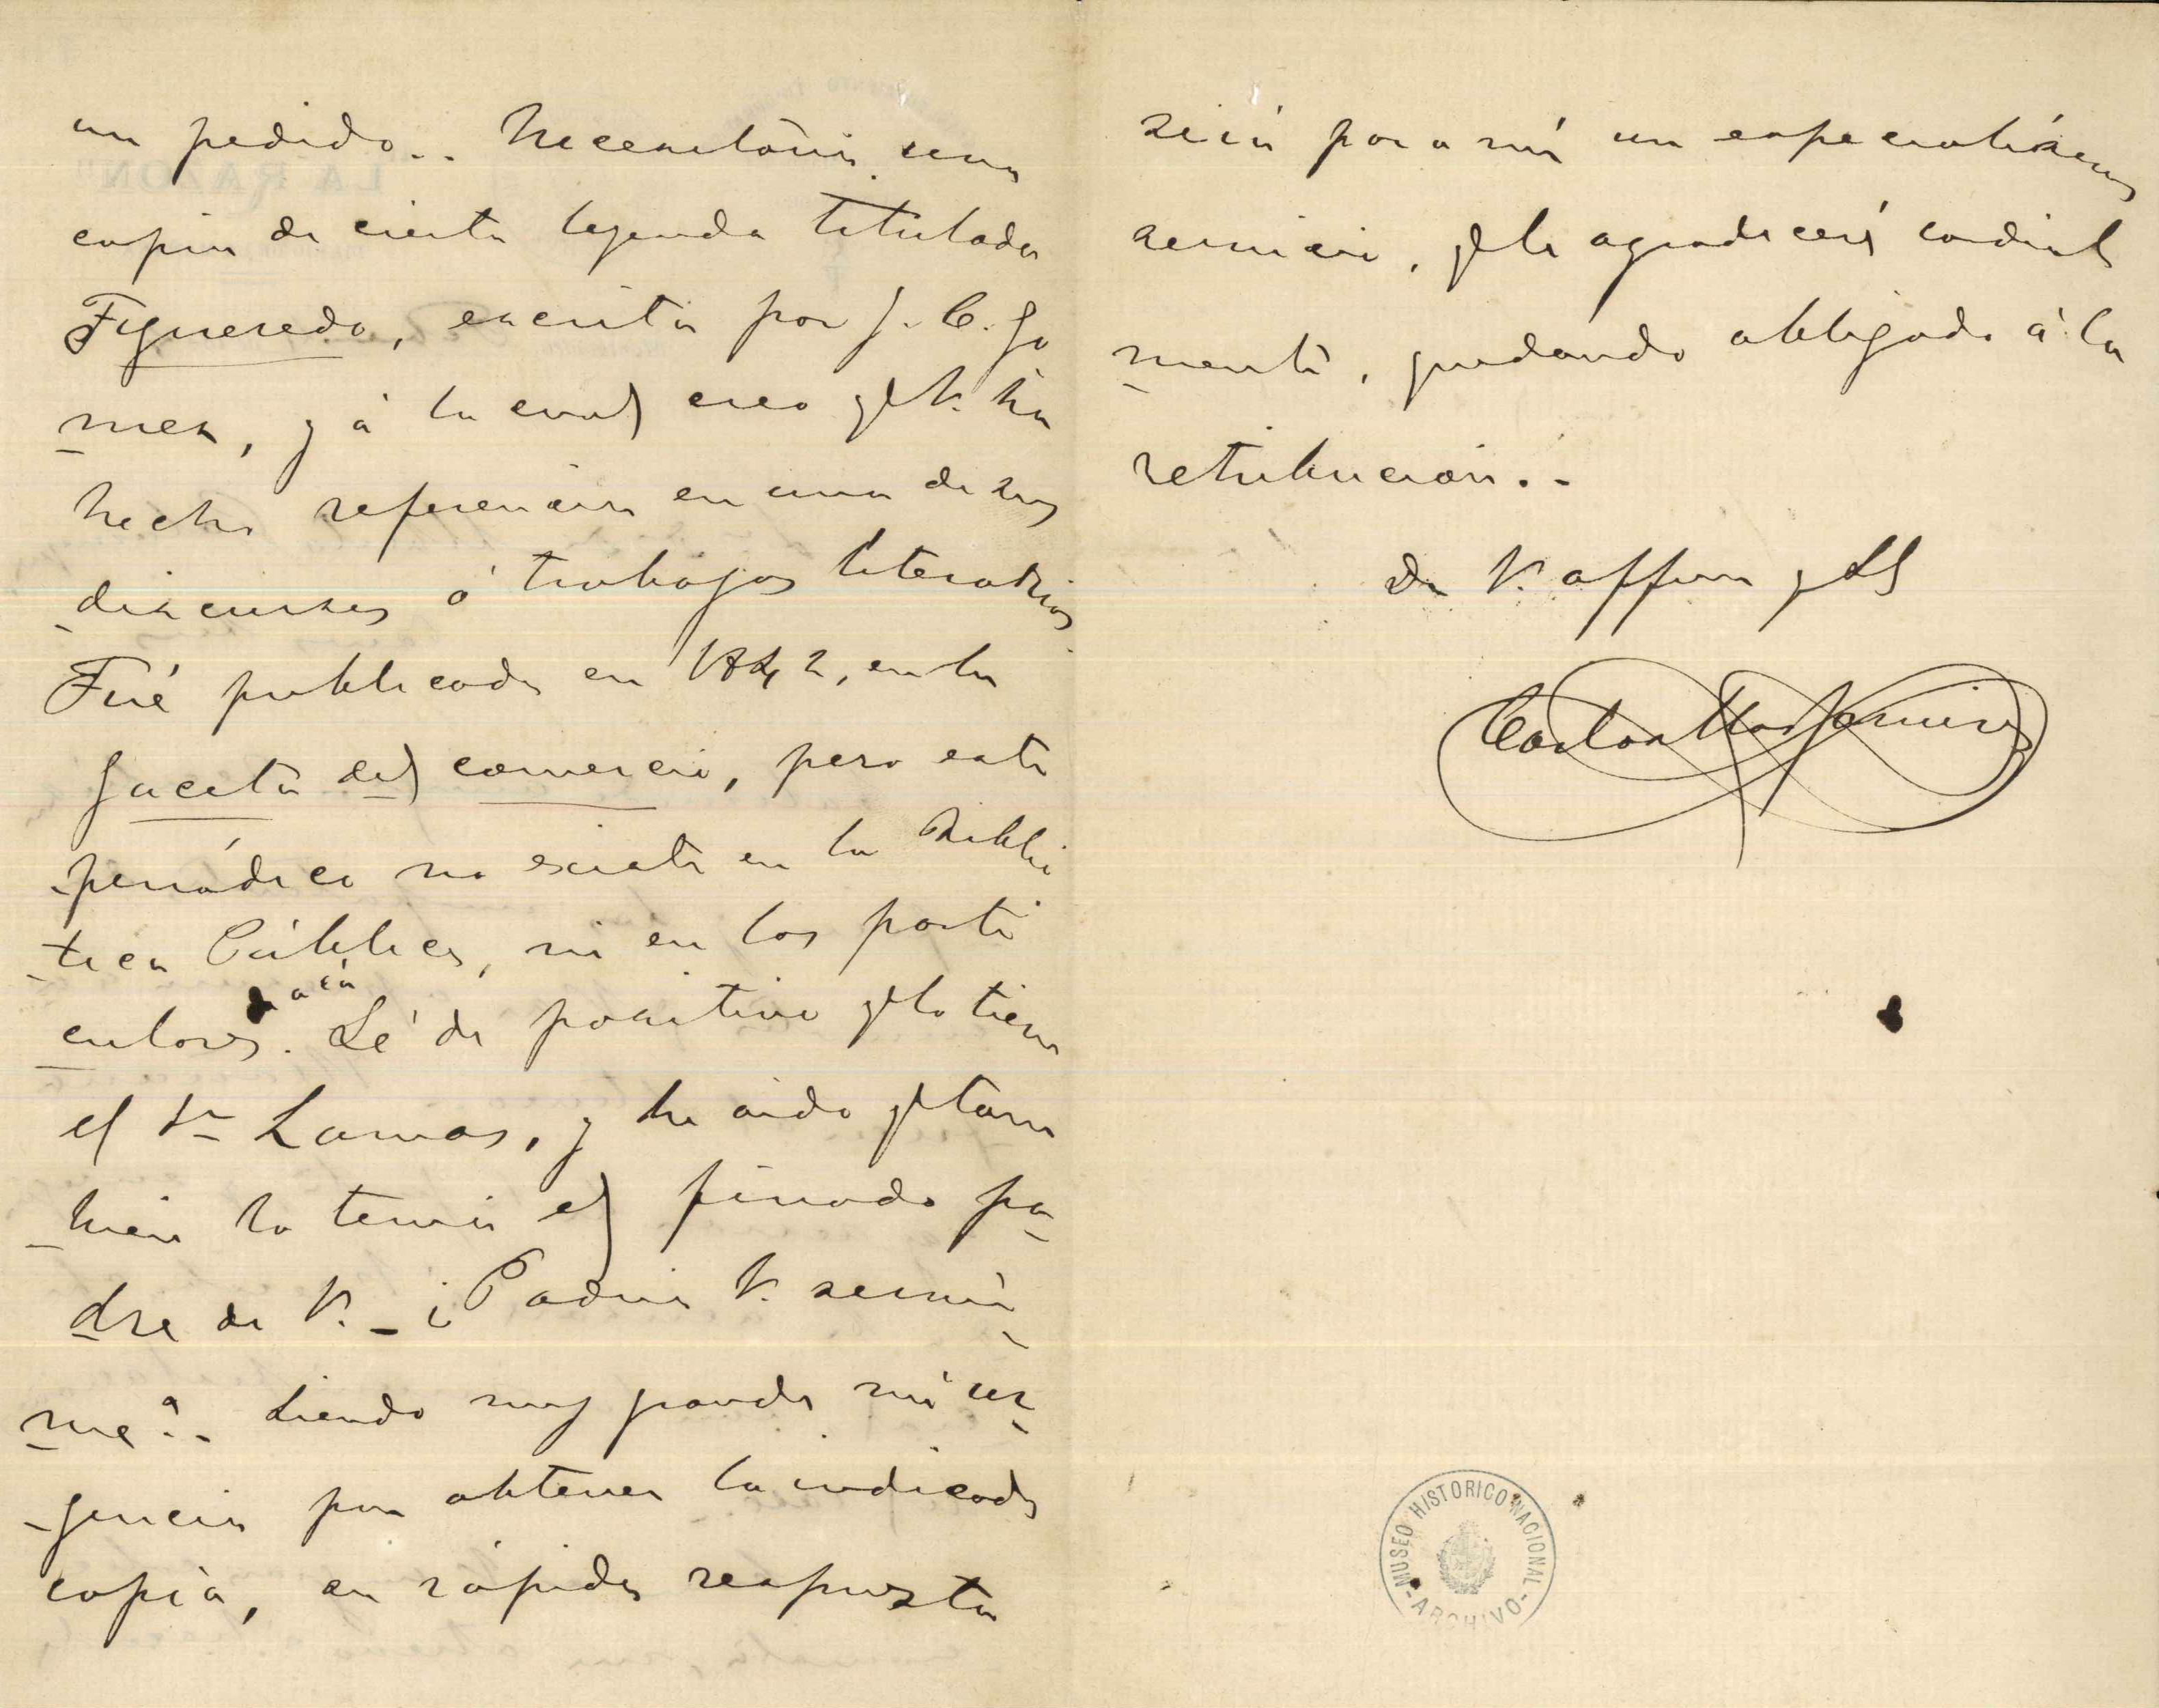 un pedido.. Necesitaria una
copia de cierta leyenda titulada
Figueredo, escrita por J. C. Go
mez, y á la cual creo q̃ V. ha
hecho referencia en uno de sus
discursos ó trabajos literarios
Fué publicada en 1842, en la
Gaceta del comercio, pero este
periódico no existe en la Biblio
teca Pública, ni en las parti
culares de acá. Sé de positivo q̃ lo tiene
el Sr Lamas, y he oido q̃ tam
bien lo tenia el finado pa-
dre de V. - ¿Podria V. servir-
me?.. Siendo muy grande mi ur-
gencia por obtener la indicada
copia, su rápida respuesta
será para mí un especialísimo
servicio, q̃ le agradeceré cordial
mente, quedando obligado á la
retribucion..
De V. affmo y SS
Carlos Ma Ramirez
MUSEO HISTORICO NACIONAL
-ARCHIVO-